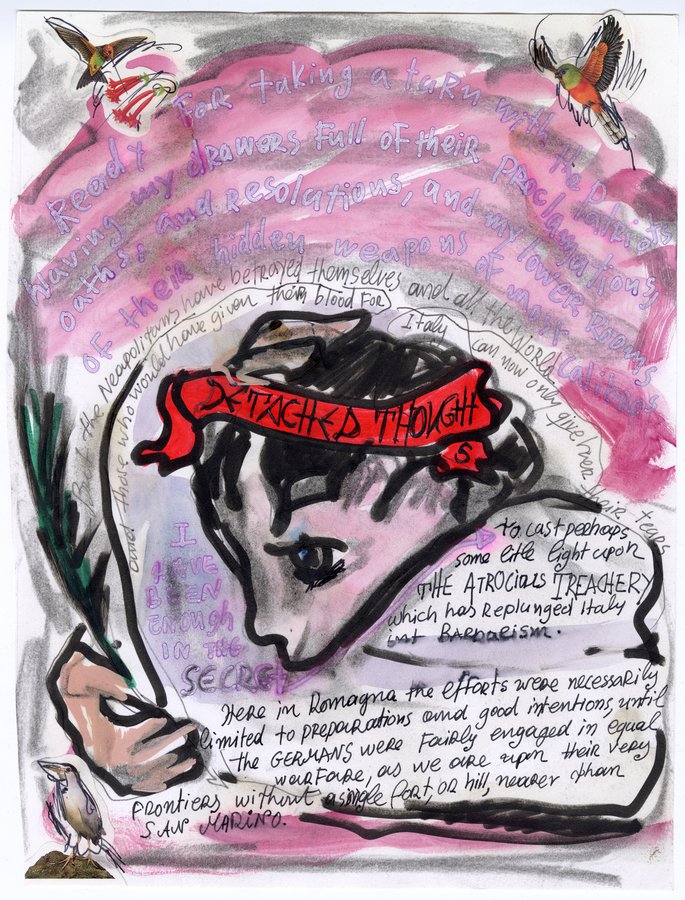 Ready For taking a turn with the Patriots
having my drawers full of their proclamations,
oaths: and resolutions, and my lower rooms
of their hidden weapons of most calibres
But the Neapolitans have betrayed themselves and all the World
and those who would have given their blood for Italy can now only give her their tears
DETACHED THOUGHT
S
I
HAVE
BEEN
ENOUGH
IN THE
SECRET
to cast perhaps
some little light upon
THE ATROCIOUS TREACHERY
which has Replunged Italy
into BARBARISM.
Here in Romagna the efforts were necessarily
limited to preparations and good intentions, until
the GERMANS were fairly engaged in equal
warfare, as we are upon their very
frontiers without a single fort, or hill, nearer than
SAN MARINO.